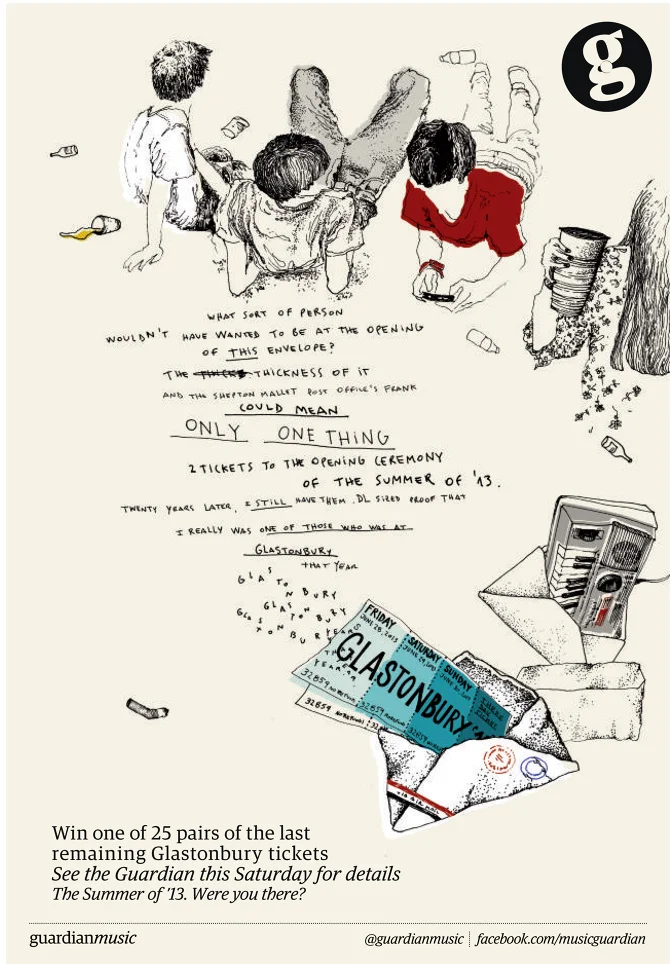 g
WHAT SORT OF PERSON
WOULDN'T HAVE WANTED TO BE AT THE OPENING
OF THIS ENVELOPE?
THE THICKNESS OF IT
AND THE SHEPTON MALLET POST OFFICE'S FRANK
COULD MEAN
ONLY ONE THING
2 TICKETS TO THE OPENING CEREMONY
OF THE SUMMER OF '13.
TWENTY YEARS LATER, I STILL HAVE THEM. DL SIZED PROOF THAT
I REALLY WAS ONE OF THOSE WHO WAS AT
GLASTONBURY
THAT YEAR
GLASTONBURY
GLASTONBURY
GLASTONBURY
YEARS
FRIDAY
JUNE 28, 2013
SATURDAY
JUNE 29, 2013
SUNDAY
GLASTONBURY
32859 32859
32859
Win one of 25 pairs of the last
remaining Glastonbury tickets
See the Guardian this Saturday for details
The Summer of '13. Were you there?
guardianmusic
@guardianmusic | facebook.com/musicguardian